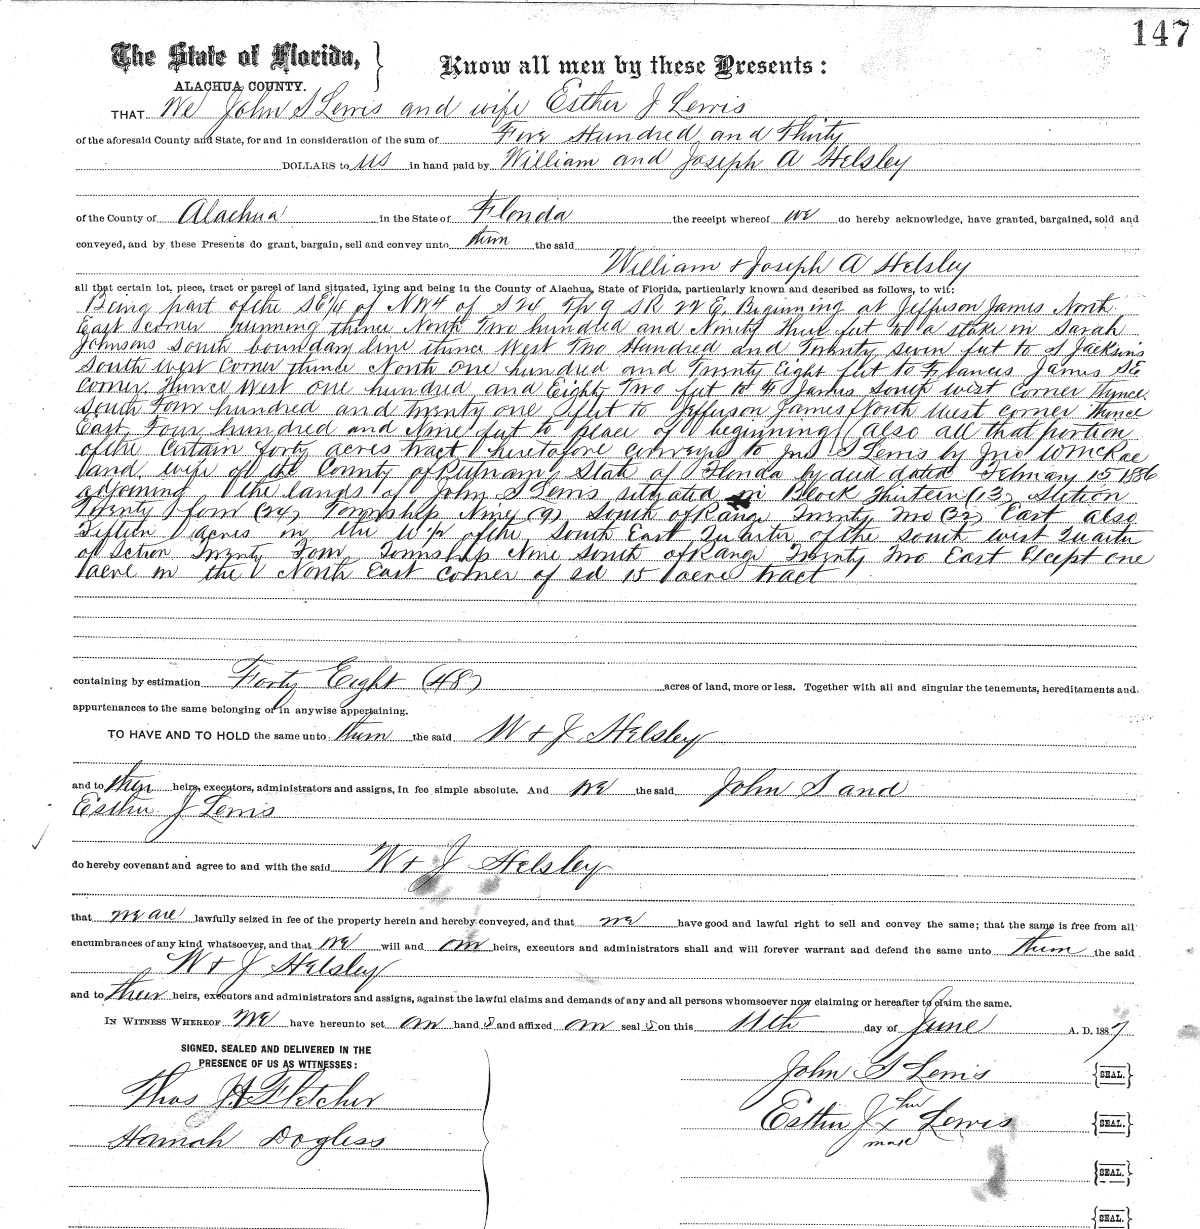 147
The State of Florida,
ALACHUA COUNTY.
Know all men by these Presents:
THAT We John S Lewis and wife Esther J Lewis
of the aforesaid County and State, for and in consideration of the sum of Five Hundred and Thirty
DOLLARS to us in hand paid by William and Joseph A Helsley
of the County of Alachua in the State of Florida the receipt whereof we do hereby acknowledge, have granted, bargained, sold and
conveyed, and by these Presents do grant, bargain, sell and convey unto them the said
William + Joseph A Helsley
all that certain lot, piece, tract or parcel of land situated, lying and being in the County of Alachua, State of Florida, particularly known and described as follows, to wit:
Being part of the SE1/4 of NW4 of S24 Tp 9 SR 22 E. Beginning at Jefferson James North
East corner running thence North Two hundred and Ninety three feet to a stake in Sarah
Johnsons South boundary line thence West Two Hundred and Twenty seven feet to J Jacksins
South west Corner thence North one hundred and Twenty Eight feet to Francis James SE
corner. Thence West one hundred and Eighty Two feet to James South west Corner Thence
South Four hundred and twenty one feet to Jefferson James North West corner Thence
East, Four hundred and Nine feet to place of beginning Also all that portion
of the certain forty acres tract heretofore conveyed to Jno S Lewis by Jno W McRae
and wife of the County of Putnam State of Florida by deed dated February 15 1886
adjoining the lands of John S Lewis situated in Block Thirteen (13) Section
Twenty four (24) Township Nine (9) South of Range Twenty Two (22) East also
Fifteen acres in the W 1/2 of the South East Quarter of the south west Quarter
of Section Twenty Four Township Nine South of Range Twenty Two East Except one
acre in the North East corner of sd 15 acre tract
containing by estimation Forty Eight (48) acres of land, more or less. Together with all and singular the tenements, hereditaments and
appurtenances to the same belonging or in anywise appertaining.
TO HAVE AND TO HOLD the same unto them the said W + J Helsley
and to their heirs, executors, administrators and assigns, in fee simple absolute. And we the said John S and
Esther J Lewis
do hereby covenant and agree to and with the said W + J Helsley
that we are lawfully seized in fee of the property herein and hereby conveyed, and that we have good and lawful right to sell and convey the same; that the same is free from all
encumbrances of any kind whatsoever, and that we will and our heirs, executors and administrators shall and will forever warrant and defend the same unto them the said
W + J Helsley
and to their heirs, executors and administrators and assigns, against the lawful claims and demands of any and all persons whomsoever now claiming or hereafter to claim the same.
IN WITNESS WHEREOF We have hereunto set our hands and affixed our seals on this 11th day of June A. D. 1887
SIGNED, SEALED AND DELIVERED IN THE
PRESENCE OF US AS WITNESSES:
Thos H Fletcher
Hannah Dogless
John S Lewis {SEAL.}
Esther J her x mark Lewis {SEAL.}
{SEAL.}
{SEAL.}